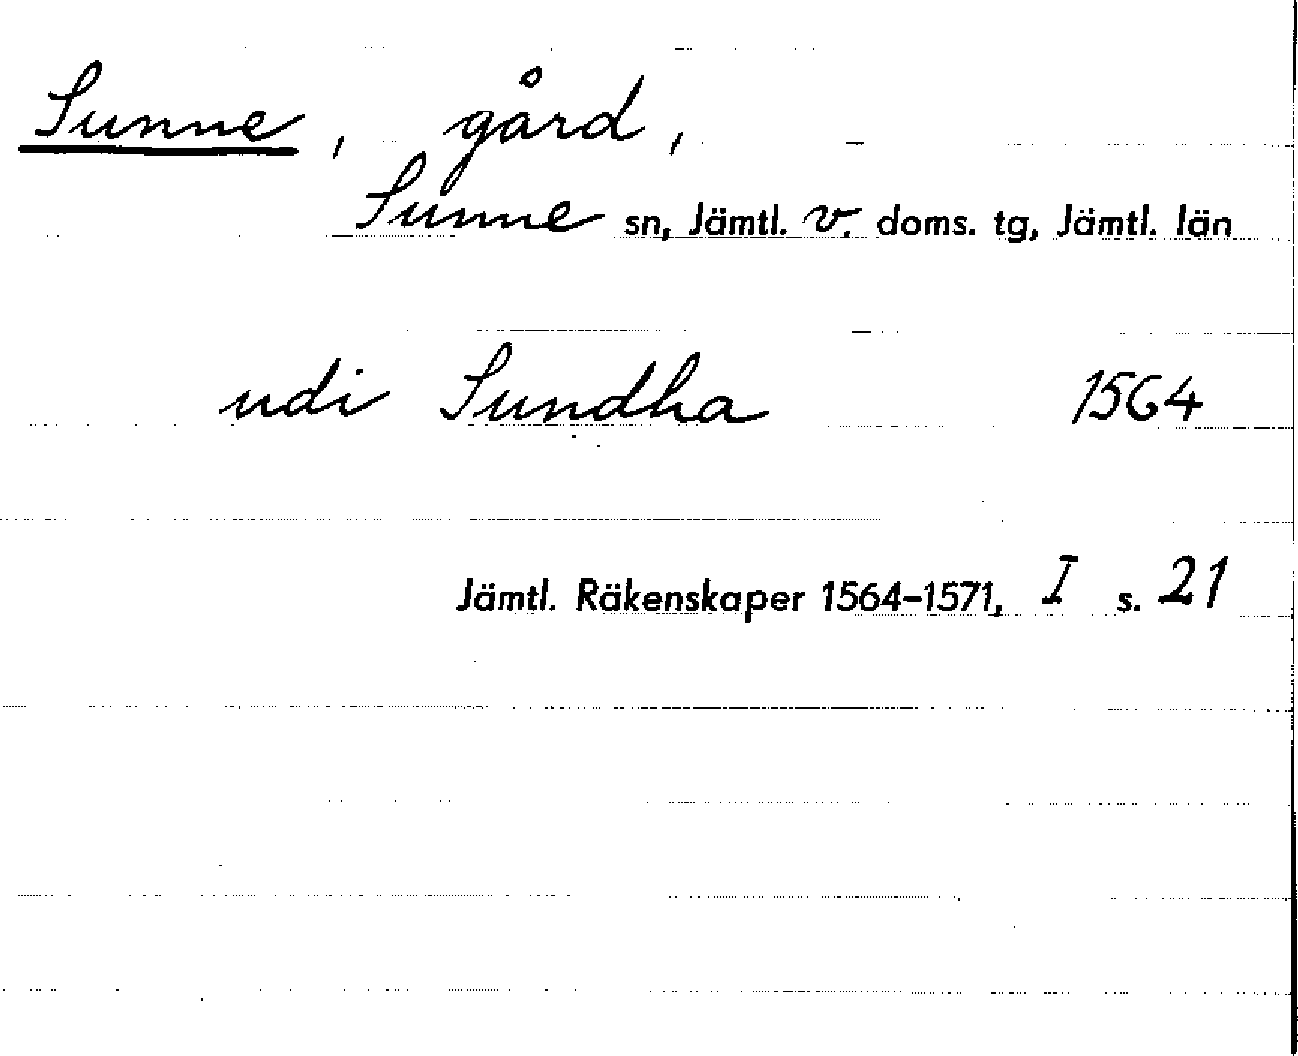 Sunne, gård,
Sunne sn, Jämtl. v. doms. tg, Jämtl. län
udi Sundha 1564
Jämtl. Räkenskaper 1564-1571, I s. 21